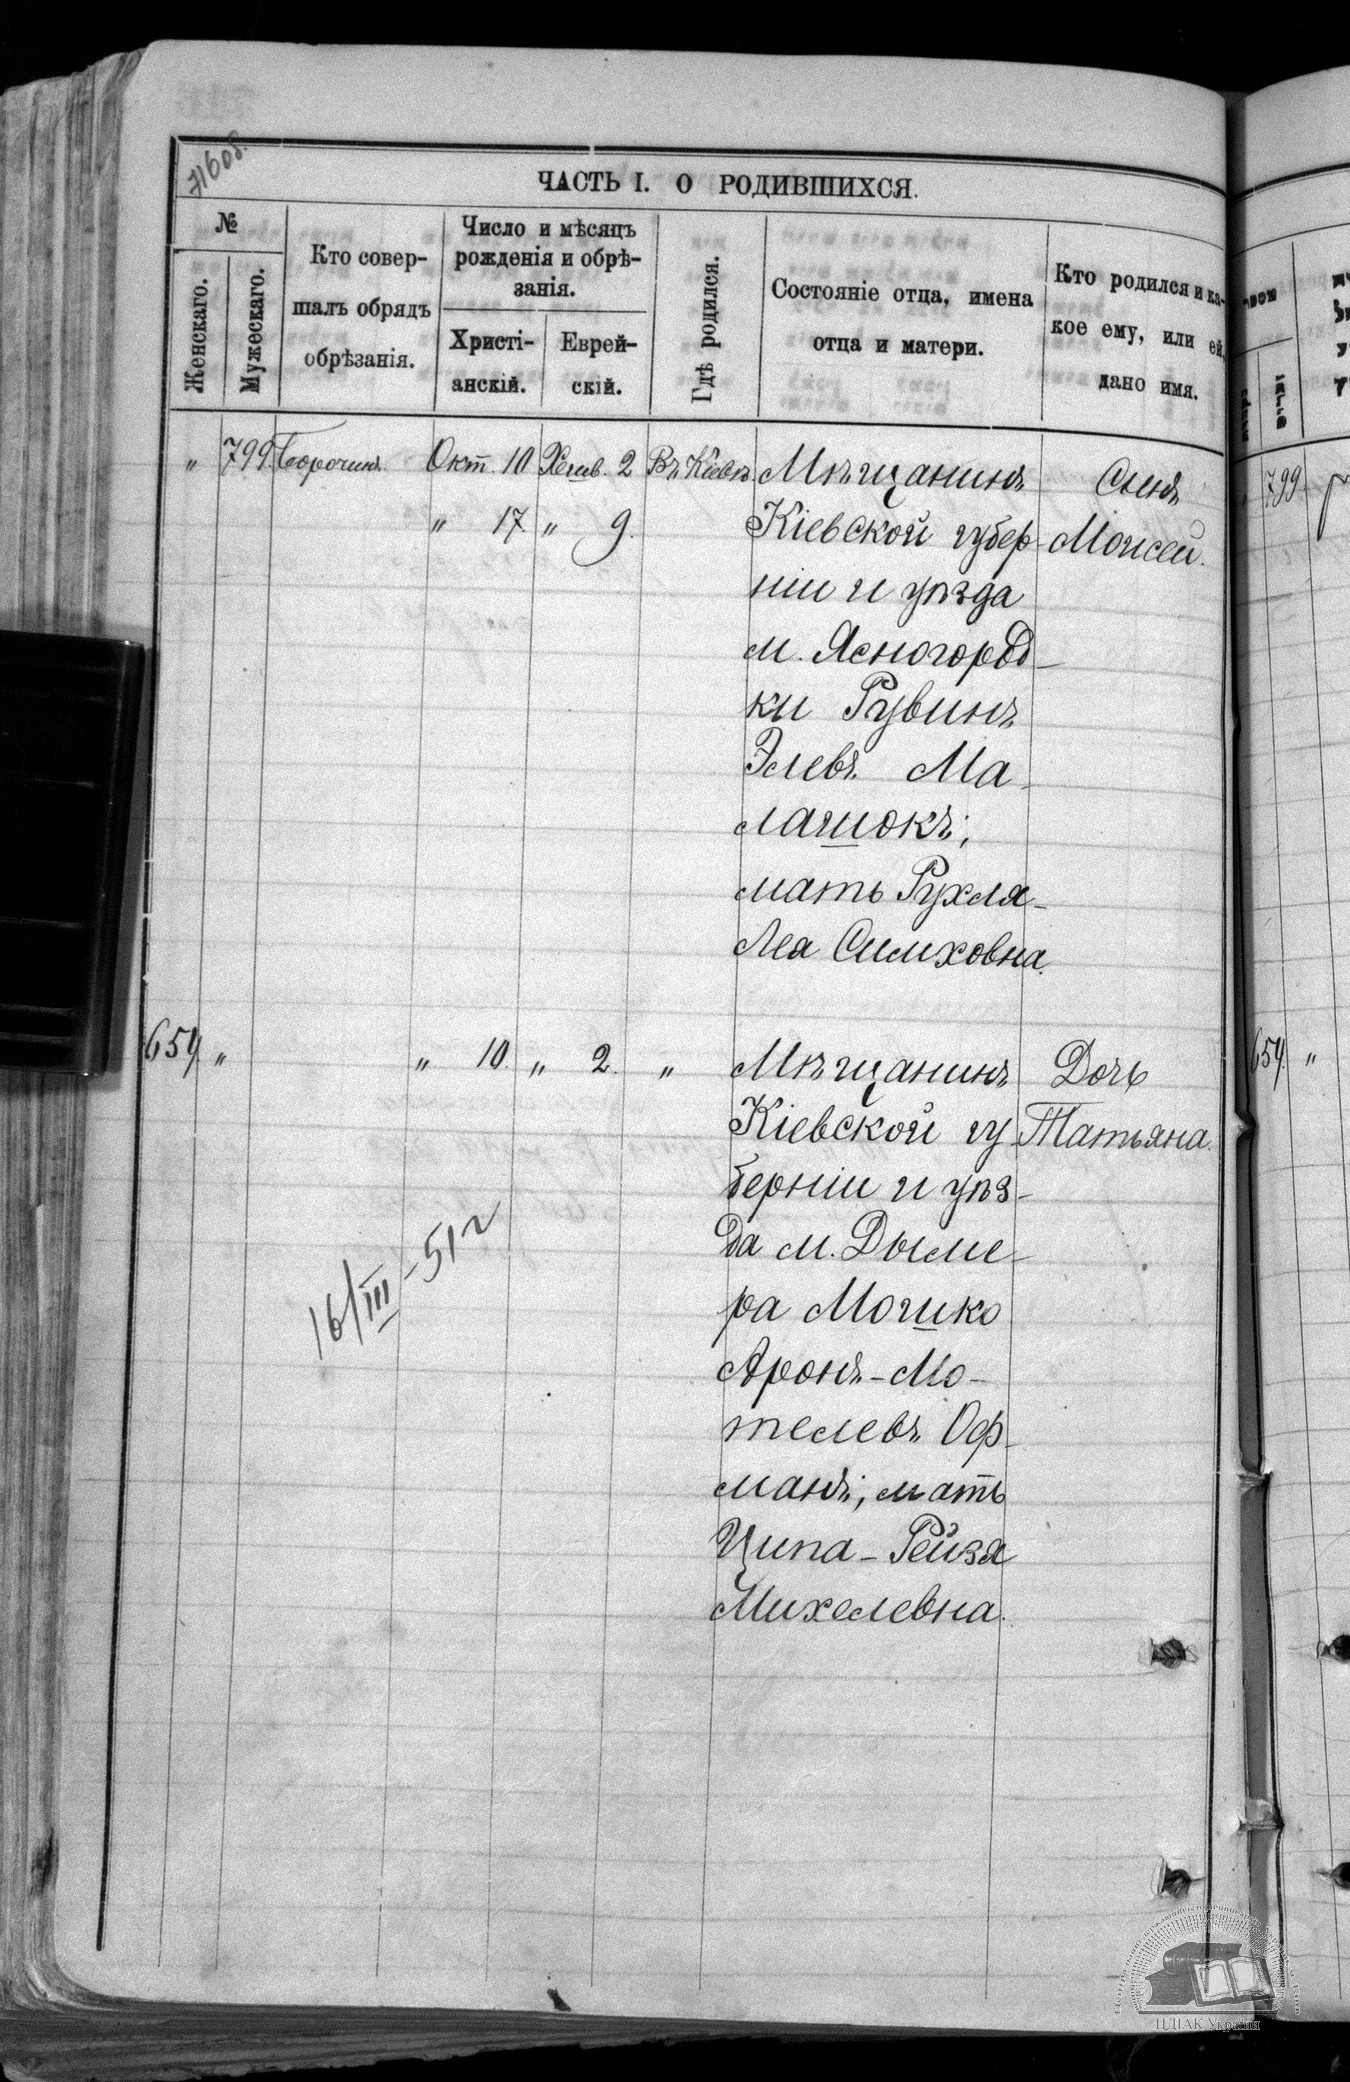 ЧАСТЬ I. О РОДИВШИХСЯ.
№
Женскаго.
Мужескаго.
Кто совер-
шалъ обрядъ
обрѣзанія.
Число и мѣсяцъ
рожденія и обрѣ-
занія.
Христі-
анскій.
Еврей-
скій.
Гдѣ родился.
Состояніе отца, имена
отца и матери.
Кто родился и ка-
кое ему, или ей,
дано имя.
„ 799 Сорочинъ. Окт. 10 Хешв. 2 Въ Кіевѣ. Мѣщанинъ Сынъ
„ 17. „ 9. Кіевской губер- Моисей.
ніи и уѣзда
м. Ясногород-
ки Рувинъ
Элевъ Ма-
лашокъ;
мать Рухля-
Леа Симховна.
654 „ „ 10. „ 2. „ Мѣщанинъ Дочь
Кіевской гу Татьяна.
берніи и уѣз-
да м. Дыме-
ра Мошко
Аронъ-Мо-
телевъ Оф-
манъ; мать
Ципа-Рейзя
Михелевна.
16/III-51 г
799
654. „
ЦДІАК України